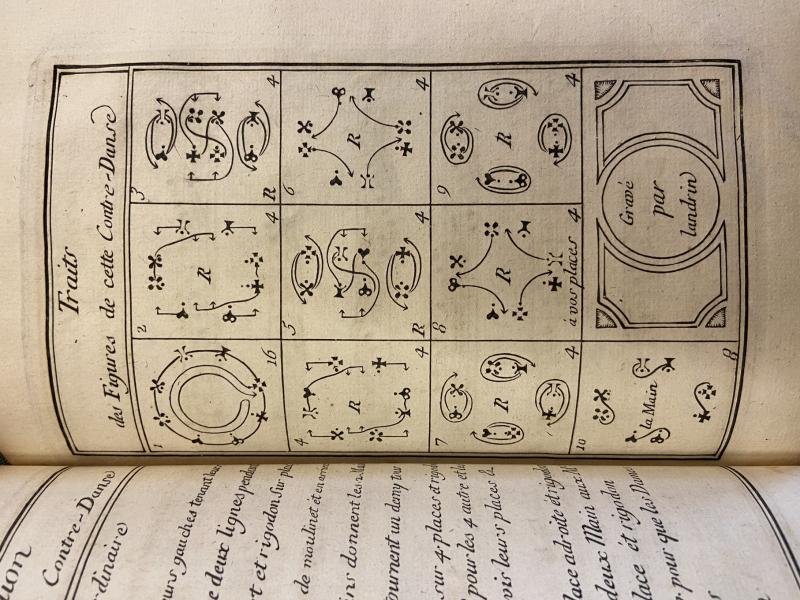 Contre-Danse
gauches tenant
deux lignes
et rigodon sur
de moulinet et en
donnent les
un demy tour
sur 4 places et
pour les 4 autre et
leurs places
adroite et
deux Main aux
et rigodon
pour que les
Traits
des Figures de cette Contre-Danse
1
16
2
R
4
3
R
4
4
R
4
5
R
4
6
R
4
7
R
4
8
R
à vos places
4
9
R
4
10
la Main
8
Gravé
par
landrin